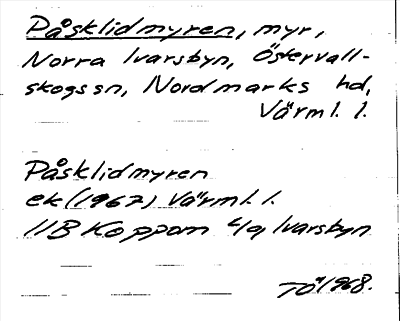 Påsklidmyren, myr,
Norra Ivarsbyn, Östervall-
skogs sn, Nordmarks hd,
Värml. l.
Påsklidmyren
ek (1967) Värml. l.
11B Koppom 4/9 Ivarsbyn
TÖ 1968.